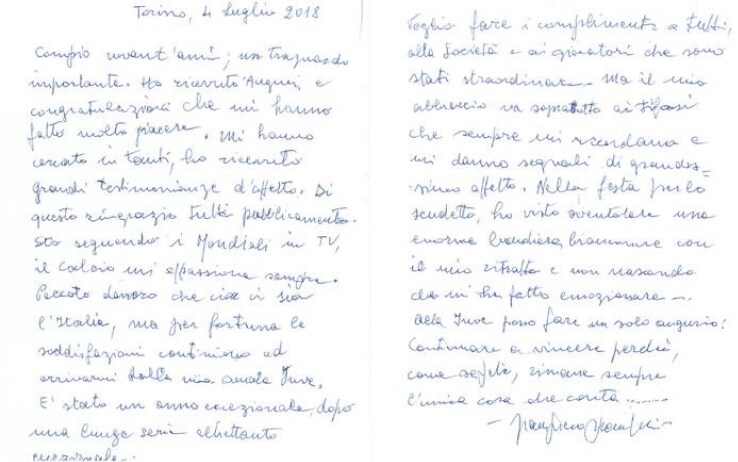 Torino, 4 Luglio 2018
Compio novant'anni; un traguardo
importante. Ho ricevuto Auguri e
congratulazioni che mi hanno
fatto molto piacere. Mi hanno
cercato in tanti, ho ricevuto
grandi testimonianze d'affetto. Di
questo ringrazio tutti pubblicamente.
Sto seguendo i Mondiali in TV,
il calcio mi appassiona sempre.
Peccato davvero che non vi sia
l'Italia, ma per fortuna le
soddisfazioni continuano ad
arrivarmi dalla mia amata Juve.
E' stato un anno eccezionale, dopo
una lunga serie altrettanto
eccezionale.
Voglio fare i complimenti a tutti,
alla Società e ai giocatori che sono
stati straordinari. Ma il mio
abbraccio va soprattutto ai tifosi
che sempre mi ricordano e
mi danno segnali di grandis-
simo affetto. Nella festa per lo
scudetto, ho visto sventolare una
enorme bandiera bianconera con
il mio ritratto e non nascondo
che mi ha fatto emozionare....
Alla Juve posso fare un solo augurio:
Continuare a vincere perché,
come sapete, rimane sempre
l'unica cosa che conta........